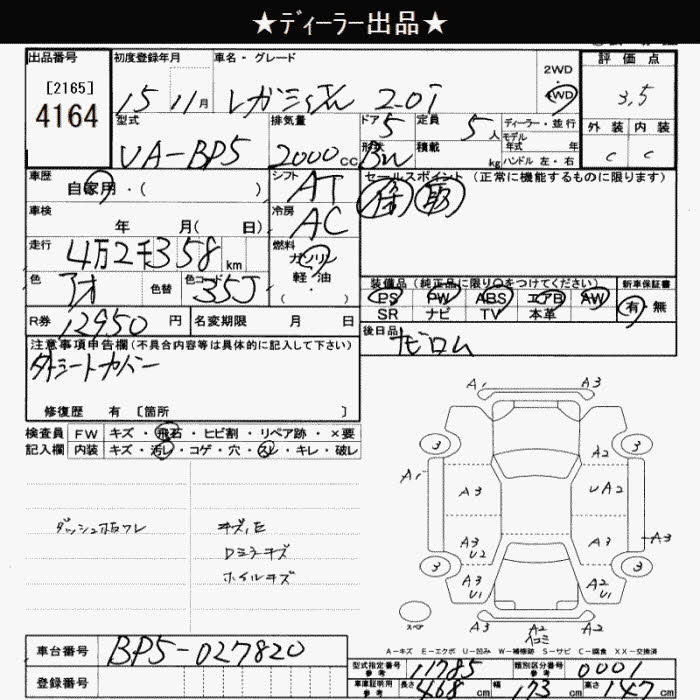 ★ディーラー出品★
出品番号
[2165]
4164
初度登録年月
15 11月
車名・グレード
2.0i
2WD
・
4WD
評価点
3.5
外装 内装
C C
型式
UA-BP5
排気量
2000cc
ドア 5
形状 BW
定員 5人
積載 kg
ディーラー・並行
モデル
年式 年
ハンドル 左・右
車歴
自家用・( )
シフト
AT
セールスポイント (正常に機能するものに限ります)
保 取
車検
年 月( 日)
冷房
AC
走行
4万2千358km
燃料
ガソリン
軽・油
( )
色
アオ
色替
色コード
35J
装備品(純正品に限り〇をつけてください)
新車保証書
PS PW ABS エアB AW
有・無
SR ナビ TV 本革
R券 12950円
名変期限 月 日
後日品
ナビロム
注意事項申告欄(不具合内容等は具体的に記入して下さい)
シートカバー
修復歴 有 [箇所 ]
検査員
記入欄
FW キズ・飛石・ヒビ割・リペア跡・×要
内装 キズ・汚レ・コゲ・穴・スレ・キレ・破レ
ダッシュ板ワレ
Dミラーキズ
ホイルキズ
A1 A3
3 3
A2
A1
A3 UA2
A3
U2
A3
A3
3 3
A3
U1
A2
U1
スペア
A3 A2 A2
A-キズ E-エクボ U-凹み W-補修跡 S-サビ C-腐食 XX-交換済
車台番号
BP5-027820
登録番号
型式指定番号
参考
11785
類別区分番号
参考
0001
車庫証明用
参考
長さ 468cm
幅 173cm
高さ 147cm